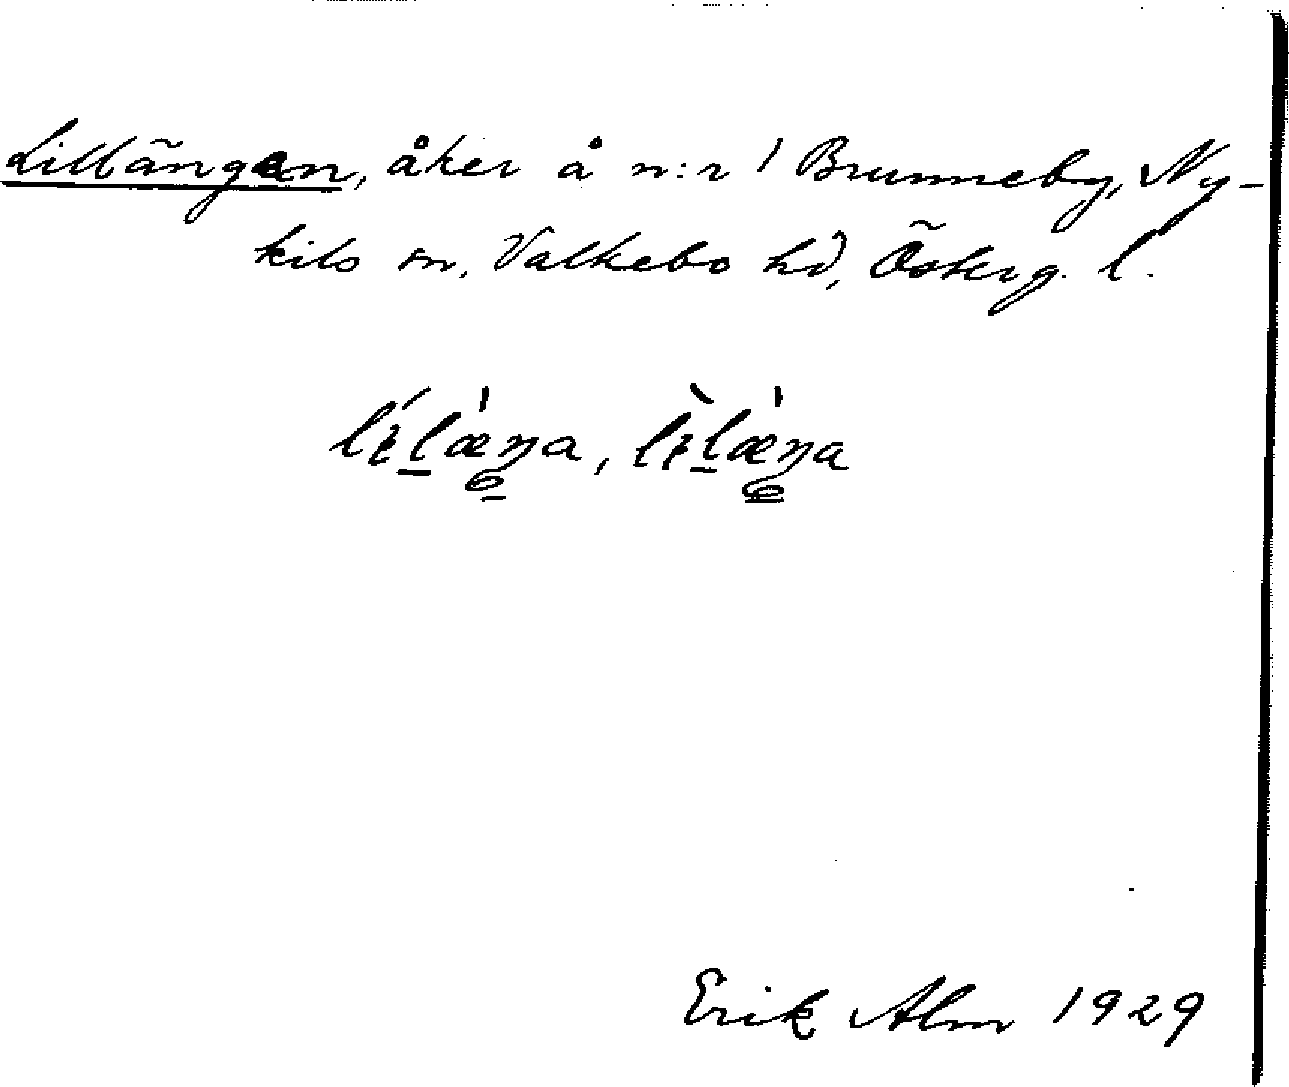 Lillängen, åker å n:r 1 Brunneby, Ny-
kils sn, Valkebo hd, Österg. l.
Erik Alm 1929